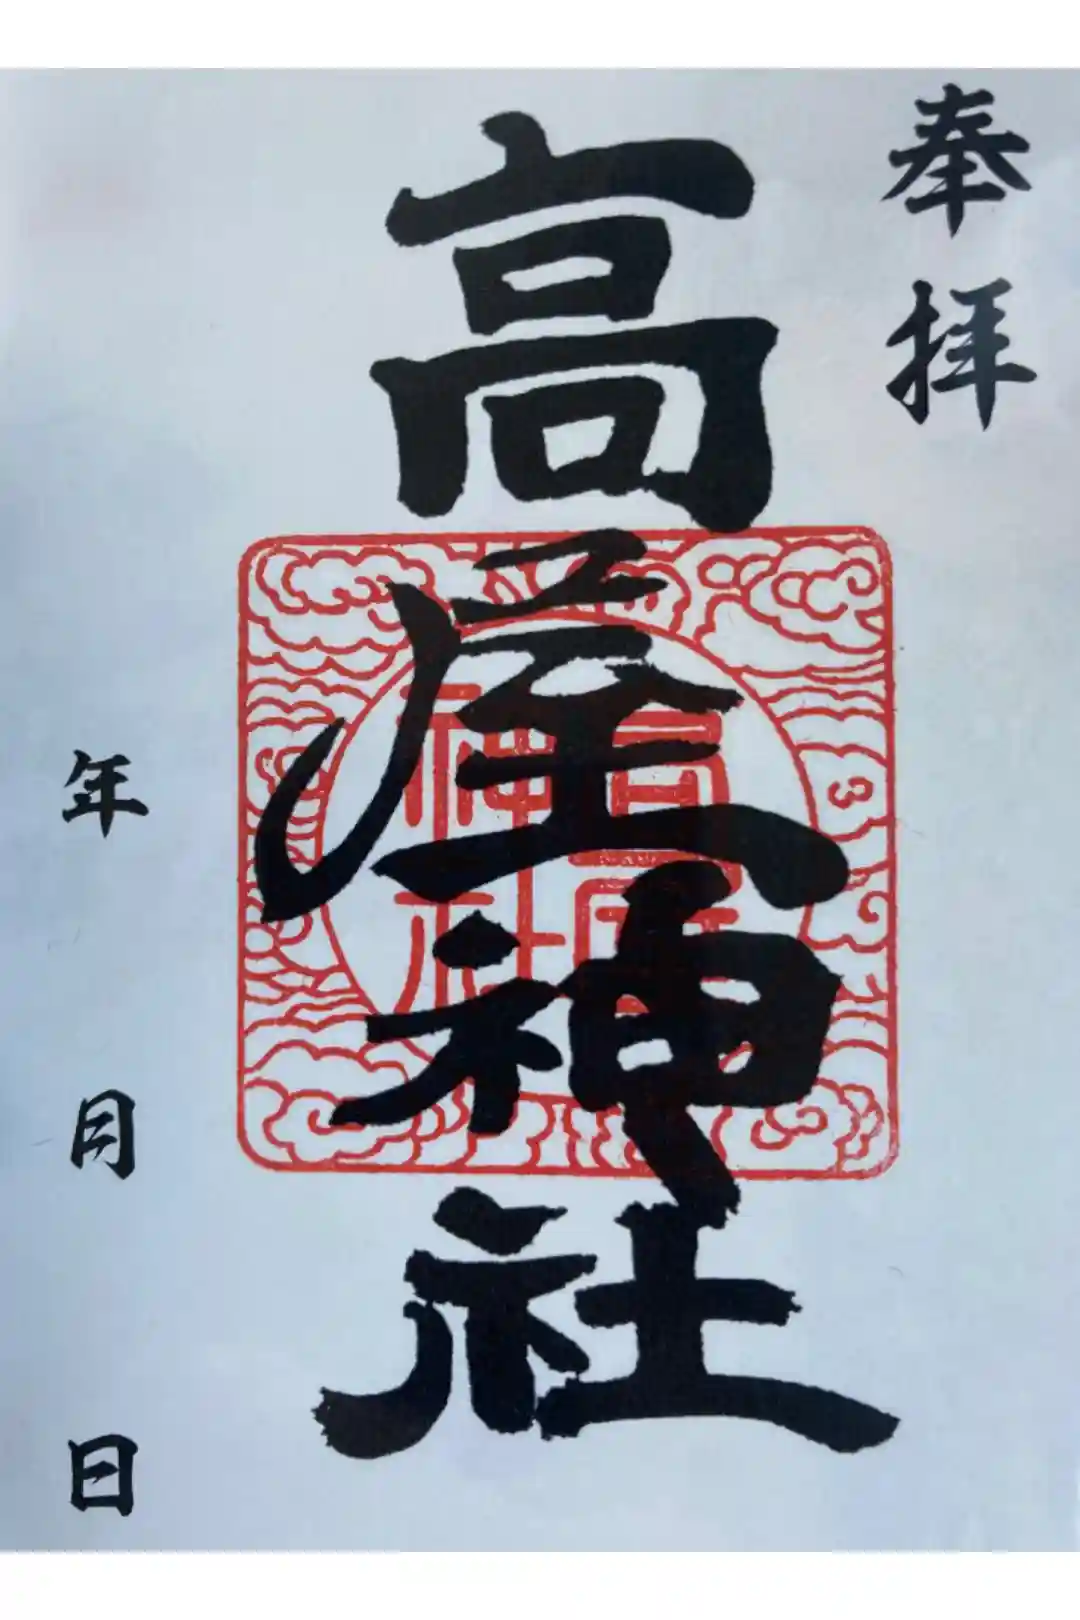 奉拝
高屋神社
高屋
神社
年 月 日